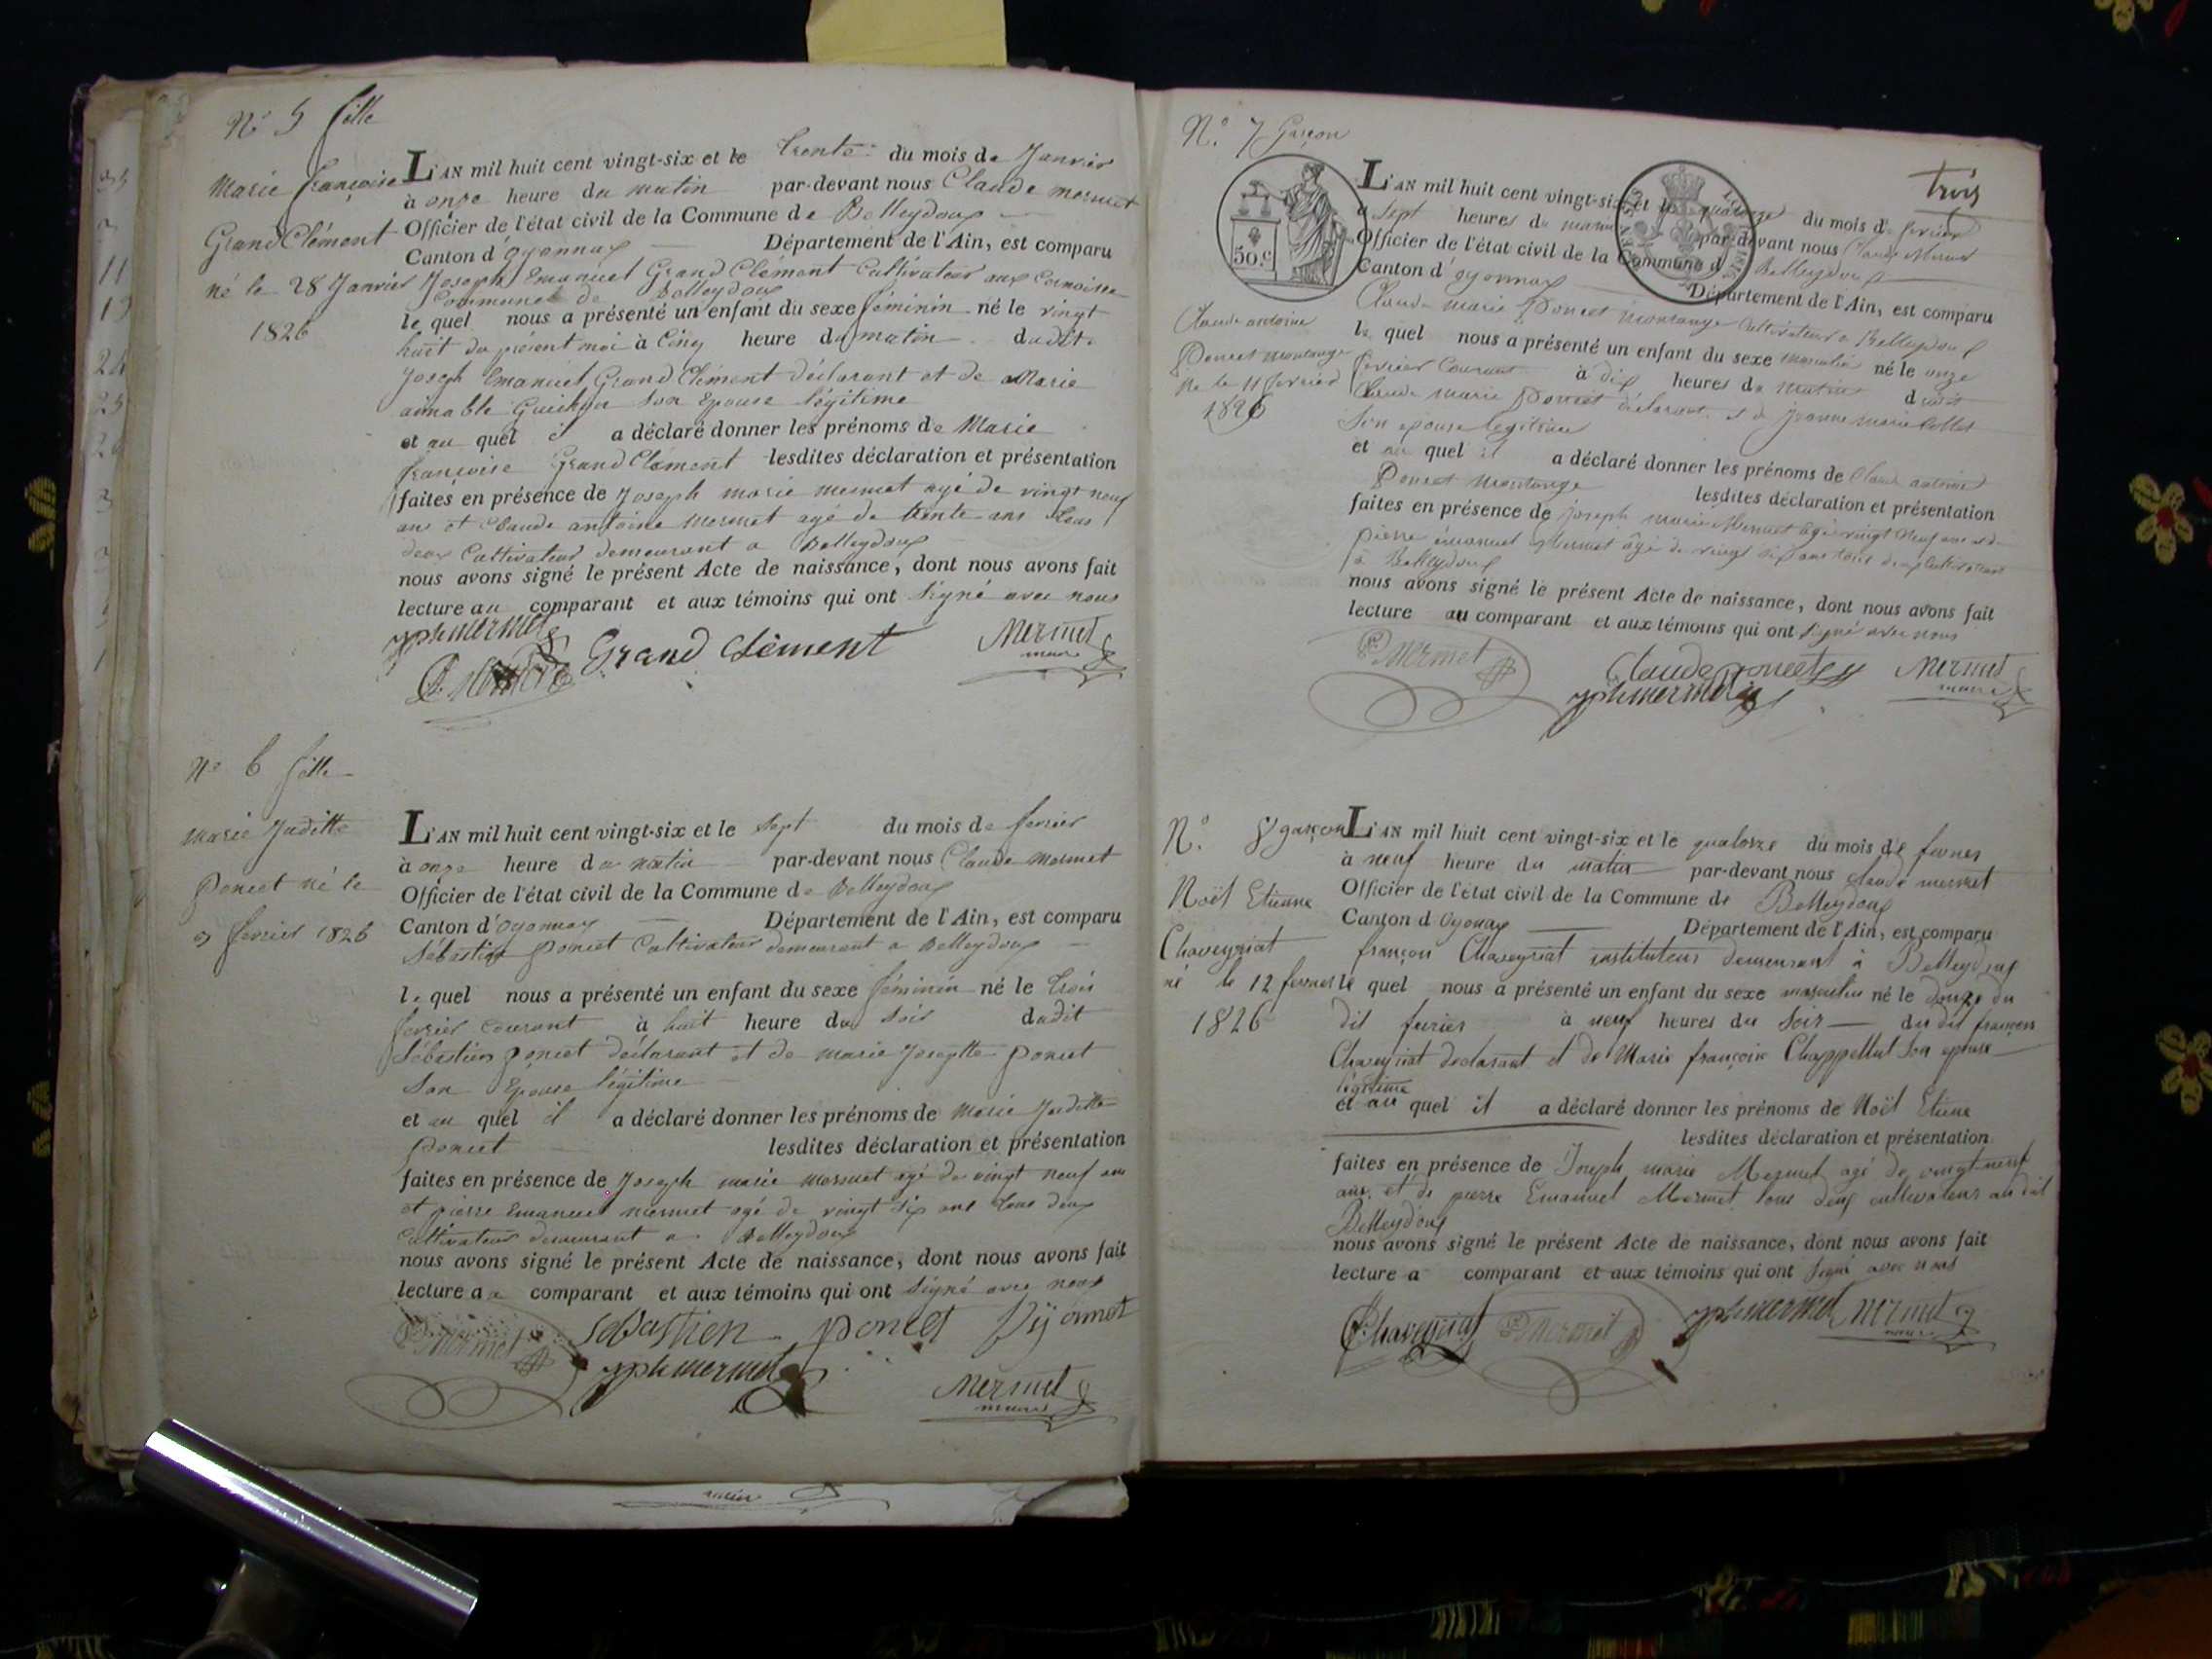 N.° 5 fille
Marie françoise
Grand Clément
né le 28 Janvier
1826
L'AN mil huit cent vingt-six et le trente du mois de Janvier
à onze heure du matin par-devant nous Claude mermet
Officier de l'état civil de la Commune de Belleydoux
Canton d'oyonnax Département de l'Ain, est comparu
Joseph Emanuel Grand Clément Cultivateur aux
Commune de Belleydoux
le quel nous a présenté un enfant du sexe féminin né le vingt
huit du présent moi à cinq heure du matin dudit
Joseph Emanuel Grand Clément déclarant et de Marie
aimable Guichon son Epouse légitime
et au quel il a déclaré donner les prénoms de Marie
françoise Grand Clément lesdites déclaration et présentation
faites en présence de Joseph marie mermet agé de vingt neuf
ans et Claude antoine Mermet agé de trente ans tous
deux Cultivateur demeurant a Belleydoux
nous avons signé le présent Acte de naissance, dont nous avons fait
lecture au comparant et aux témoins qui ont signé avec nous
jph mermet Grand Clément Mermet
maire
N° 6 fille
Marie Juditte
Poncet né le
3 fevrier 1826
L'AN mil huit cent vingt-six et le sept du mois de fevrier
à onze heure du matin par-devant nous Claude Mermet
Officier de l'état civil de la Commune de Belleydoux
Canton d'oyonnax Département de l'Ain, est comparu
Sébastien poncet Cultivateur demeurant a Belleydoux
le quel nous a présenté un enfant du sexe féminin né le trois
fevrier courant à huit heure du soir dudit
Sébastien poncet déclarant et de marie Josephte poncet
son Epouse légitime
et au quel il a déclaré donner les prénoms de Marie Juditte
poncet lesdites déclaration et présentation
faites en présence de Joseph marie mermet agé de vingt neuf ans
et pierre Emanuel mermet agé de vingt six ans tous deux
Cultivateur demeurant a Belleydoux
nous avons signé le présent Acte de naissance, dont nous avons fait
lecture au comparant et aux témoins qui ont signé avec nous
P Mermet sebastien poncet
jph mermet Mermet
maire
N.° 7 Garçon
trois
50.c
Claude antoine
Poncet montange
né le 11 fevrier
1826
L'AN mil huit cent vingt-six et le quatorze du mois de fevrier
à sept heures du matin par-devant nous Claude Mermet
Officier de l'état civil de la Commune de Belleydoux
Canton d'oyonnax Département de l'Ain, est comparu
Claude marie Poncet montange Cultivateur a Belleydoux
le quel nous a présenté un enfant du sexe masculin né le onze
fevrier Courant à dix heures du matin dudit
Claude marie Poncet déclarant et de jeanne marie
son épouse legitime
et au quel il a déclaré donner les prénoms de Claude antoine
Poncet montange lesdites déclaration et présentation
faites en présence de joseph marie Mermet âgé vingt neuf ans et de
pierre émanuel Mermet âgé de vingt six ans tous deux Cultivateurs
à Belleydoux
nous avons signé le présent Acte de naissance, dont nous avons fait
lecture au comparant et aux témoins qui ont signé avec nous
P Mermet Claude poncet Mermet
jph mermet maire
N.° 8 garçon
Noël Etienne
Chaveyriat
né le 12 fevrier
1826
L'AN mil huit cent vingt-six et le quatorze du mois de fevrier
à neuf heure du matin par-devant nous claude mermet
Officier de l'état civil de la Commune de Belleydoux
Canton d Oyonax Département de l'Ain, est comparu
françois Chaveyriat instituteur demeurant à Belleydoux
le quel nous a présenté un enfant du sexe masculin né le douze du
dit fevrier à neuf heures du Soir du dit françois
Chaveyriat declarant et de Marie françoise Chappellut son epouse
légitime
et au quel il a déclaré donner les prénoms de Noël Etienne
lesdites déclaration et présentation
faites en présence de Joseph marie Mermet agé de vingt neuf
ans et de pierre Emanuel Mermet tous deux cultivateurs au dit
Belleydoux
nous avons signé le présent Acte de naissance, dont nous avons fait
lecture a comparant et aux témoins qui ont signé avec nous
Chaveyriat P Mermet jph mermet Mermet
maire